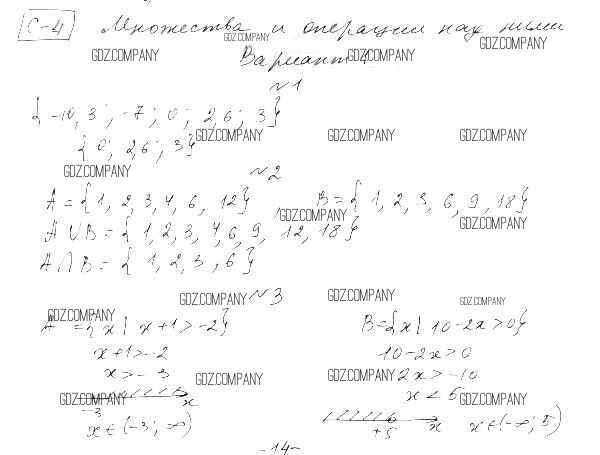 С-4 Множества и операции над ними
GDZ.COMPANY
GDZ.COMPANY GDZ.COMPANY
Вариант 1
GDZ.COMPANY
№1
{ -10,3 ; -7 ; 0 ; 2,6 ; 3}
{ 0 ; 2,6 ; 3}
GDZ.COMPANY GDZ.COMPANY GDZ.COMPANY
GDZ.COMPANY
№2
A = {1, 2, 3, 4, 6, 12} B = {1, 2, 3, 6, 9, 18}
GDZ.COMPANY GDZ.COMPANY
A ∪ B = {1, 2, 3, 4, 6, 9, 12, 18}
A ∩ B = {1, 2, 3, 6}
GDZ.COMPANY №3 GDZ.COMPANY GDZ.COMPANY
GDZ.COMPANY
A = {x | x+1 > -2} B = {x | 10-2x > 0}
x+1 > -2 10-2x > 0
x > -3 2x > -10
GDZ.COMPANY GDZ.COMPANY
x < 5
GDZ.COMPANY GDZ.COMPANY
-3 x
+5 x
x ∈ (-3; ∞) x ∈ (-∞; 5)
-14-